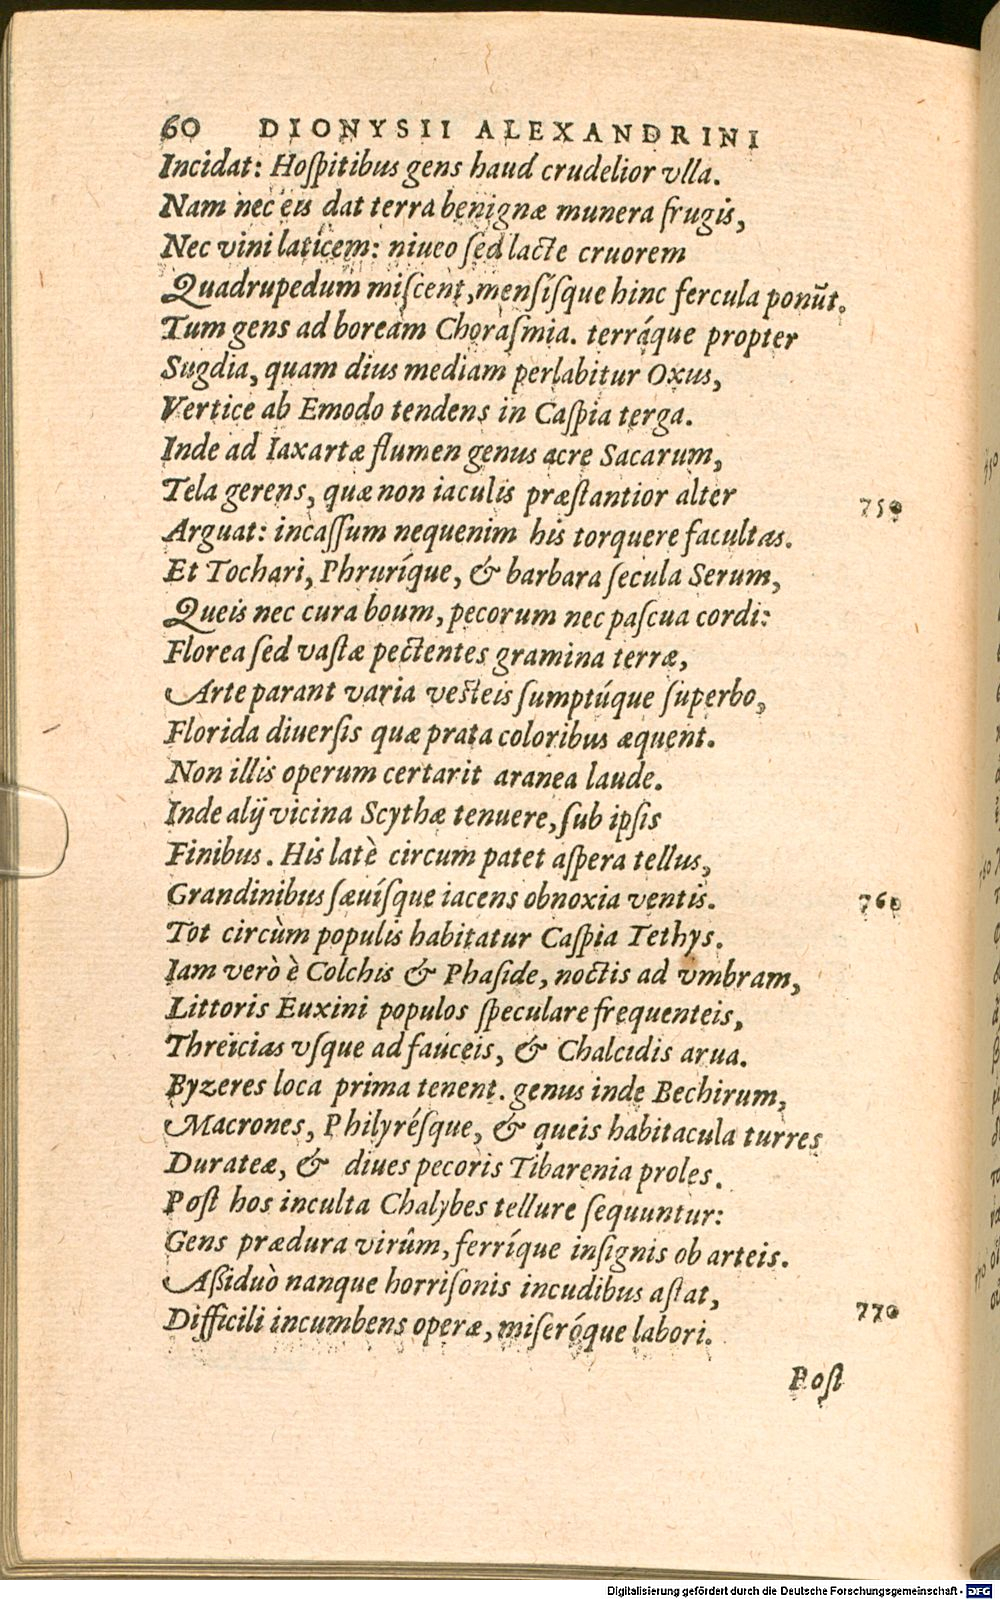 60 DIONYSII ALEXANDRINI
Incidat: Hoſpitibus gens haud crudelior vlla.
Nam nec eis dat terra benignæ munera frugis,
Nec vini laticem: niueo ſed lacte cruorem
Quadrupedum miſcent, menſíſque hinc fercula ponūt.
Tum gens ad boream Choraſmia. terráque propter
Sugdia, quam dius mediam perlabitur Oxus,
Vertice ab Emodo tendens in Caſpia terga.
Inde ad Iaxartæ flumen genus acre Sacarum,
Tela gerens, quæ non iaculis præſtantior alter 750
Arguat: incaſſum nequenim his torquere facultas.
Et Tochari, Phruríque, & barbara ſecula Serum,
Queis nec cura boum, pecorum nec paſcua cordi:
Florea ſed vaſtæ pectentes gramina terræ,
Arte parant varia veſteis ſumptúque ſuperbo,
Florida diuerſis quæ prata coloribus æquent.
Non illis operum certarit aranea laude.
Inde alij vicina Scythæ tenuere, ſub ipſis
Finibus. His latè circum patet aſpera tellus,
Grandinibus ſæuíſque iacens obnoxia ventis. 760
Tot circùm populis habitatur Caſpia Tethys.
Iam verò è Colchis & Phaſide, noctis ad vmbram,
Littoris Euxini populos ſpeculare frequenteis,
Threicias vſque ad fauceis, & Chalcidis arua.
Byzeres loca prima tenent. genus inde Bechirum,
Macrones, Philyréſque, & queis habitacula turres
Durateæ, & diues pecoris Tibarenia proles.
Poſt hos inculta Chalybes tellure ſequuntur:
Gens prædura virûm, ferríque inſignis ob arteis.
Aßiduò nanque horriſonis incudibus aſtat,
Difficili incumbens operæ, miſeróque labori. 770
Poſt
Digitalisierung gefördert durch die Deutsche Forschungsgemeinschaft - DFG